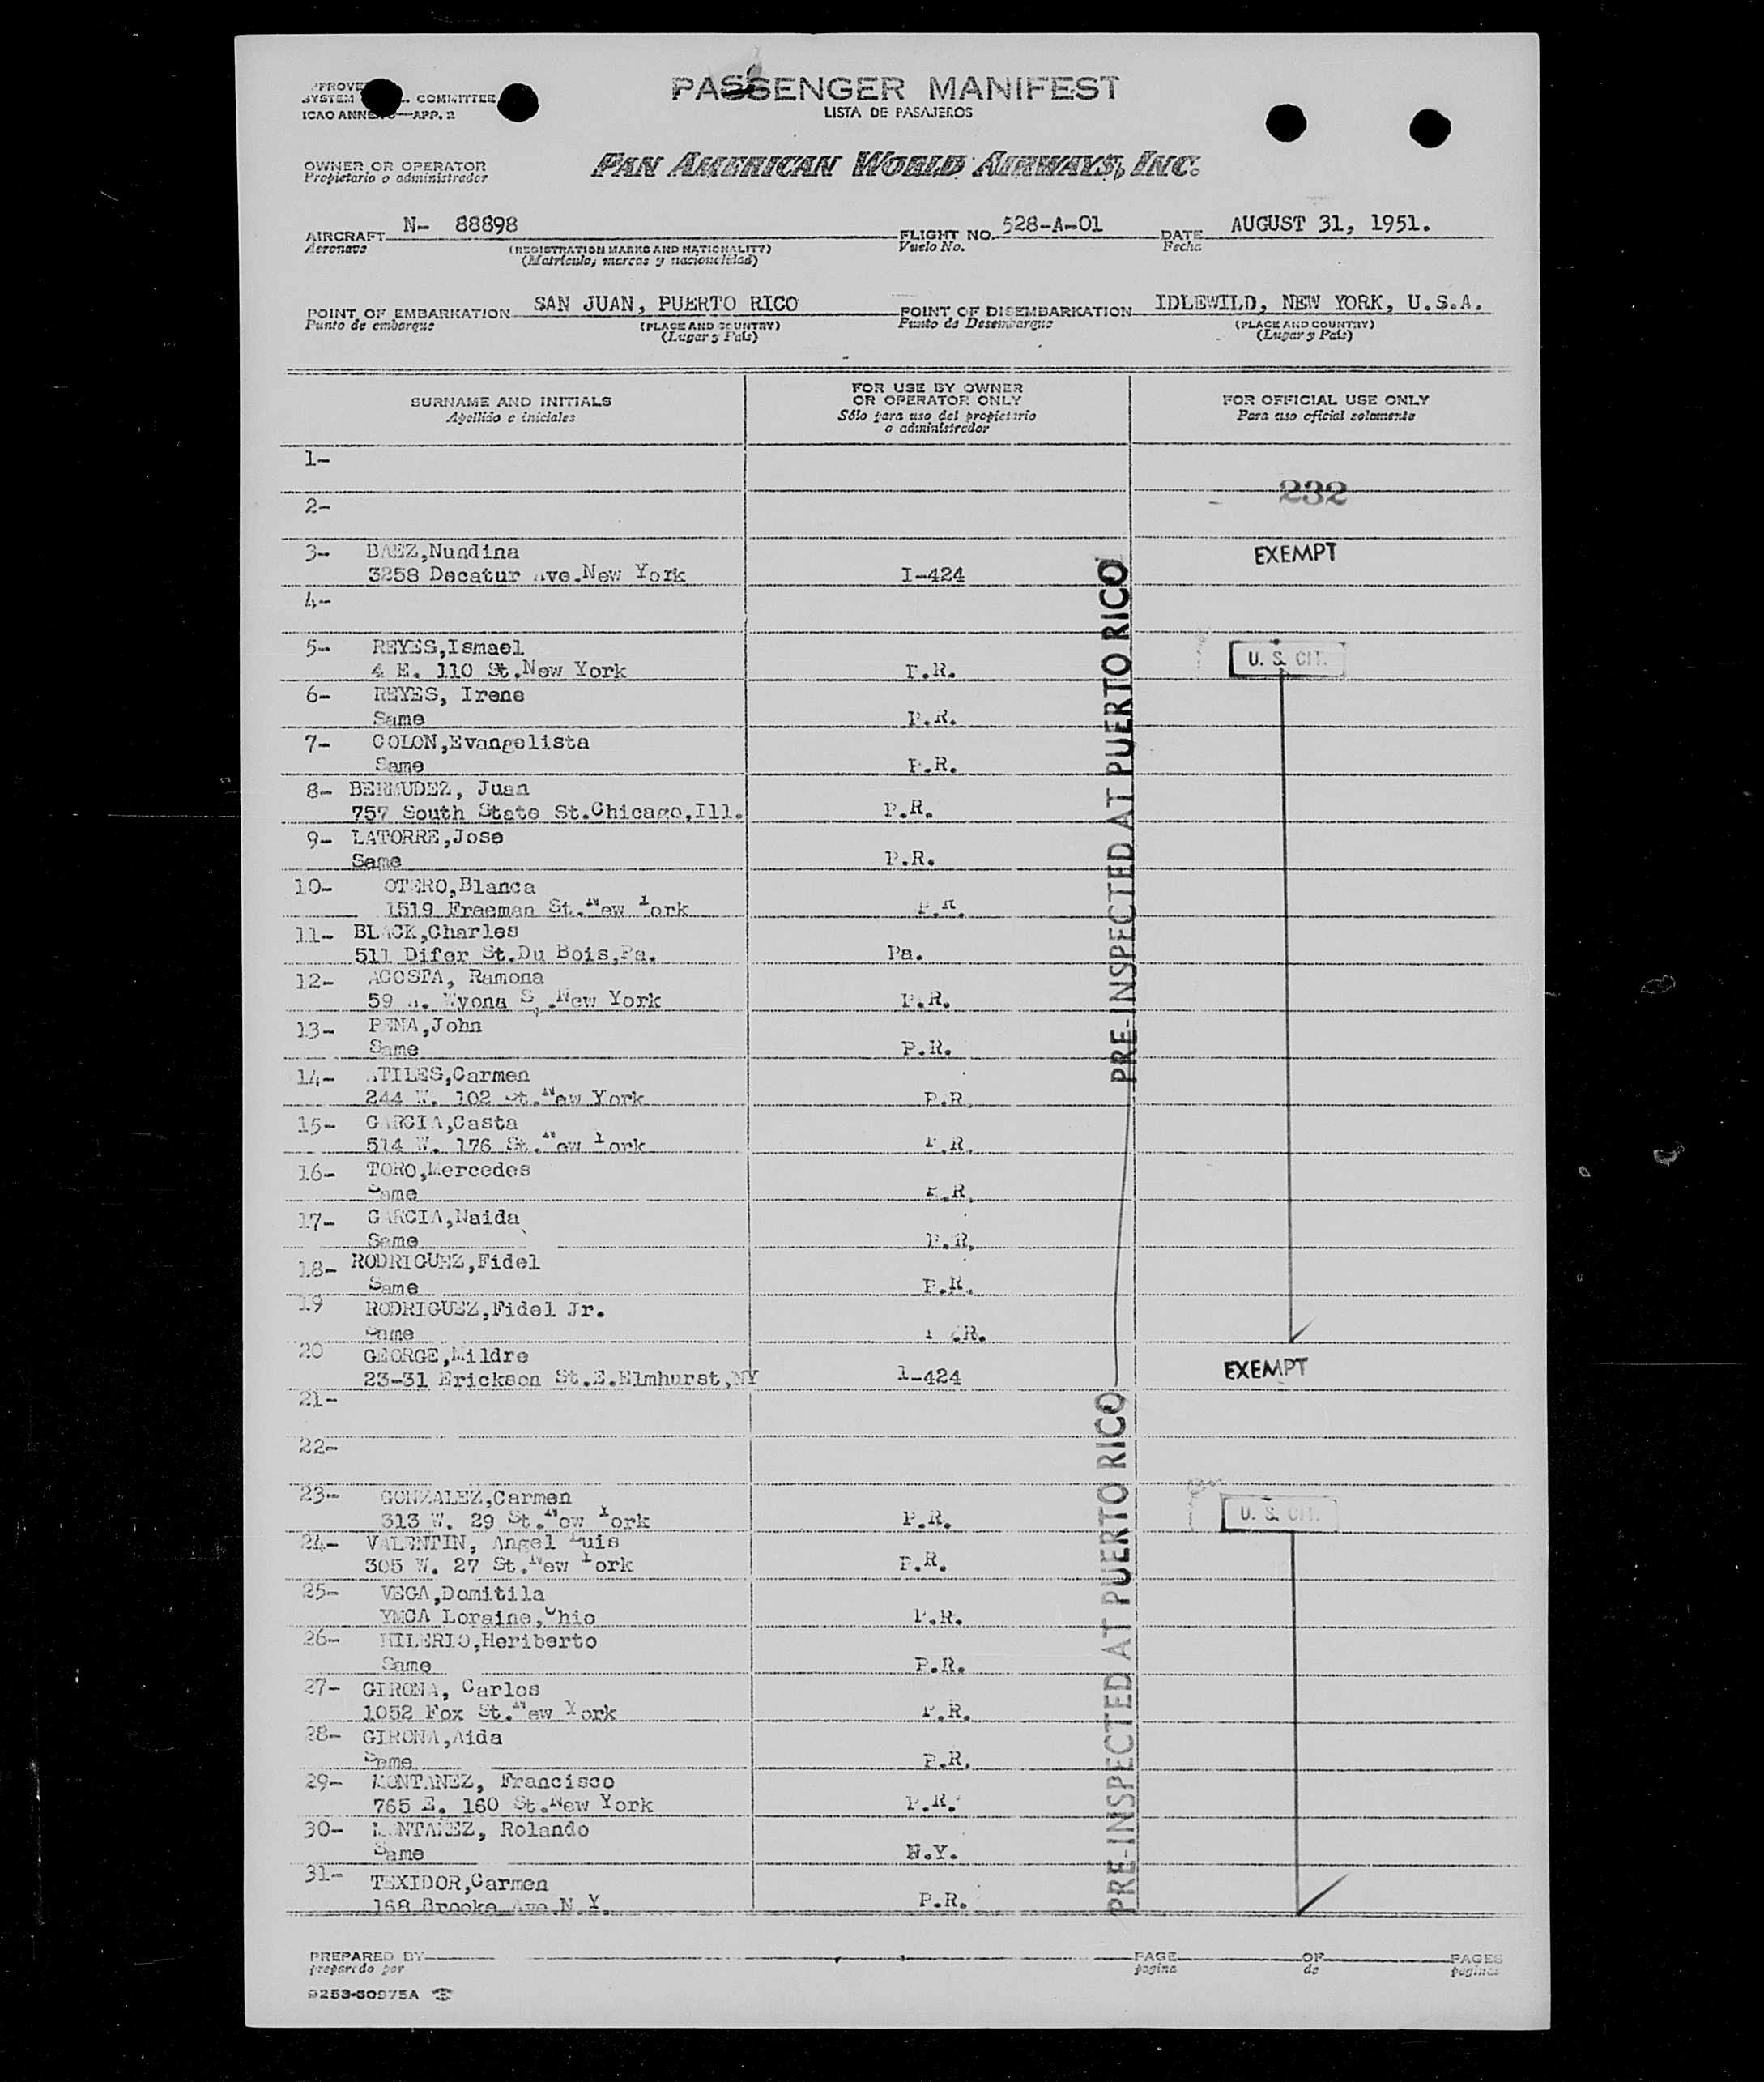 PASSENGER MANIFEST
LISTA DE PASAJEROS
SYSTEM COMMITTEE
ICAO ANNEX —APP. 2
OWNER OR OPERATOR
Propietario o administrador
PAN AMERICAN WORLD AIRWAYS, INC.
AIRCRAFT N- 88898 FLIGHT NO. 528-A-01 DATE AUGUST 31, 1951.
Aeronave (REGISTRATION MARKS AND NATIONALITY) Vuelo No. Fecha
(Matrícula, marcas y nacionalidad)
POINT OF EMBARKATION SAN JUAN, PUERTO RICO POINT OF DISEMBARKATION IDLEWILD, NEW YORK, U.S.A.
Punto de embarque (PLACE AND COUNTRY) Punto de Desembarque (PLACE AND COUNTRY)
(Lugar y País) (Lugar y País)
SURNAME AND INITIALS FOR USE BY OWNER OR OPERATOR ONLY FOR OFFICIAL USE ONLY
Apellido e iniciales Sólo para uso del propietario o administrador Para uso oficial solamente
1-
232
2-
3- BAEZ,Nundina EXEMPT
3258 Decatur Ave.New York I-424
4-
5- REYES,Ismael U. S. CIT.
4 E. 110 St.New York P.R.
6- REYES, Irene
Same P.R.
7- COLON,Evangelista
Same P.R.
8- BERMUDEZ, Juan
757 South State St.Chicago,Ill. P.R.
9- LATORRE,Jose
Same P.R.
10- OTERO,Blanca
1519 Freeman St.New York P.R.
11- BLACK,Charles
511 Difer St.Du Bois,Pa. Pa.
12- ACOSTA, Ramona
59 Wyona .New York P.R.
13- PENA,John
Same P.R.
14- ATILES,Carmen
244 W. 102 St.New York P.R.
15- GARCIA,Casta
514 W. 176 St.New York P.R.
16- TORO,Mercedes
Same P.R.
17- GARCIA,Naida
Same P.R.
18- RODRIGUEZ,Fidel
Same P.R.
19 RODRIGUEZ,Fidel Jr.
Same P.R.
20 GEORGE,Mildre
23-31 Erickson St.E.Elmhurst,NY 1-424 EXEMPT
21-
22-
23- GONZALEZ,Carmen U. S. CIT.
313 W. 29 St.New York P.R.
24- VALENTIN, Angel Luis
305 W. 27 St.New York P.R.
25- VEGA,Domitila
YMCA Loraine,Ohio P.R.
26- HILERIO,Heriberto
Same P.R.
27- GIRONA, Carlos
1052 Fox St.New York P.R.
28- GIRONA,Aida
Same P.R.
29- MONTANEZ, Francisco
765 E. 160 St.New York P.R.
30- MONTANEZ, Rolando
Same N.Y.
31- TEXIDOR,Carmen
168 Brooke Ave.N.Y. P.R.
PRE-INSPECTED AT PUERTO RICO
PRE-INSPECTED AT PUERTO RICO
PREPARED BY PAGE OF PAGES
preparado por pagina de paginas
9253-60975A